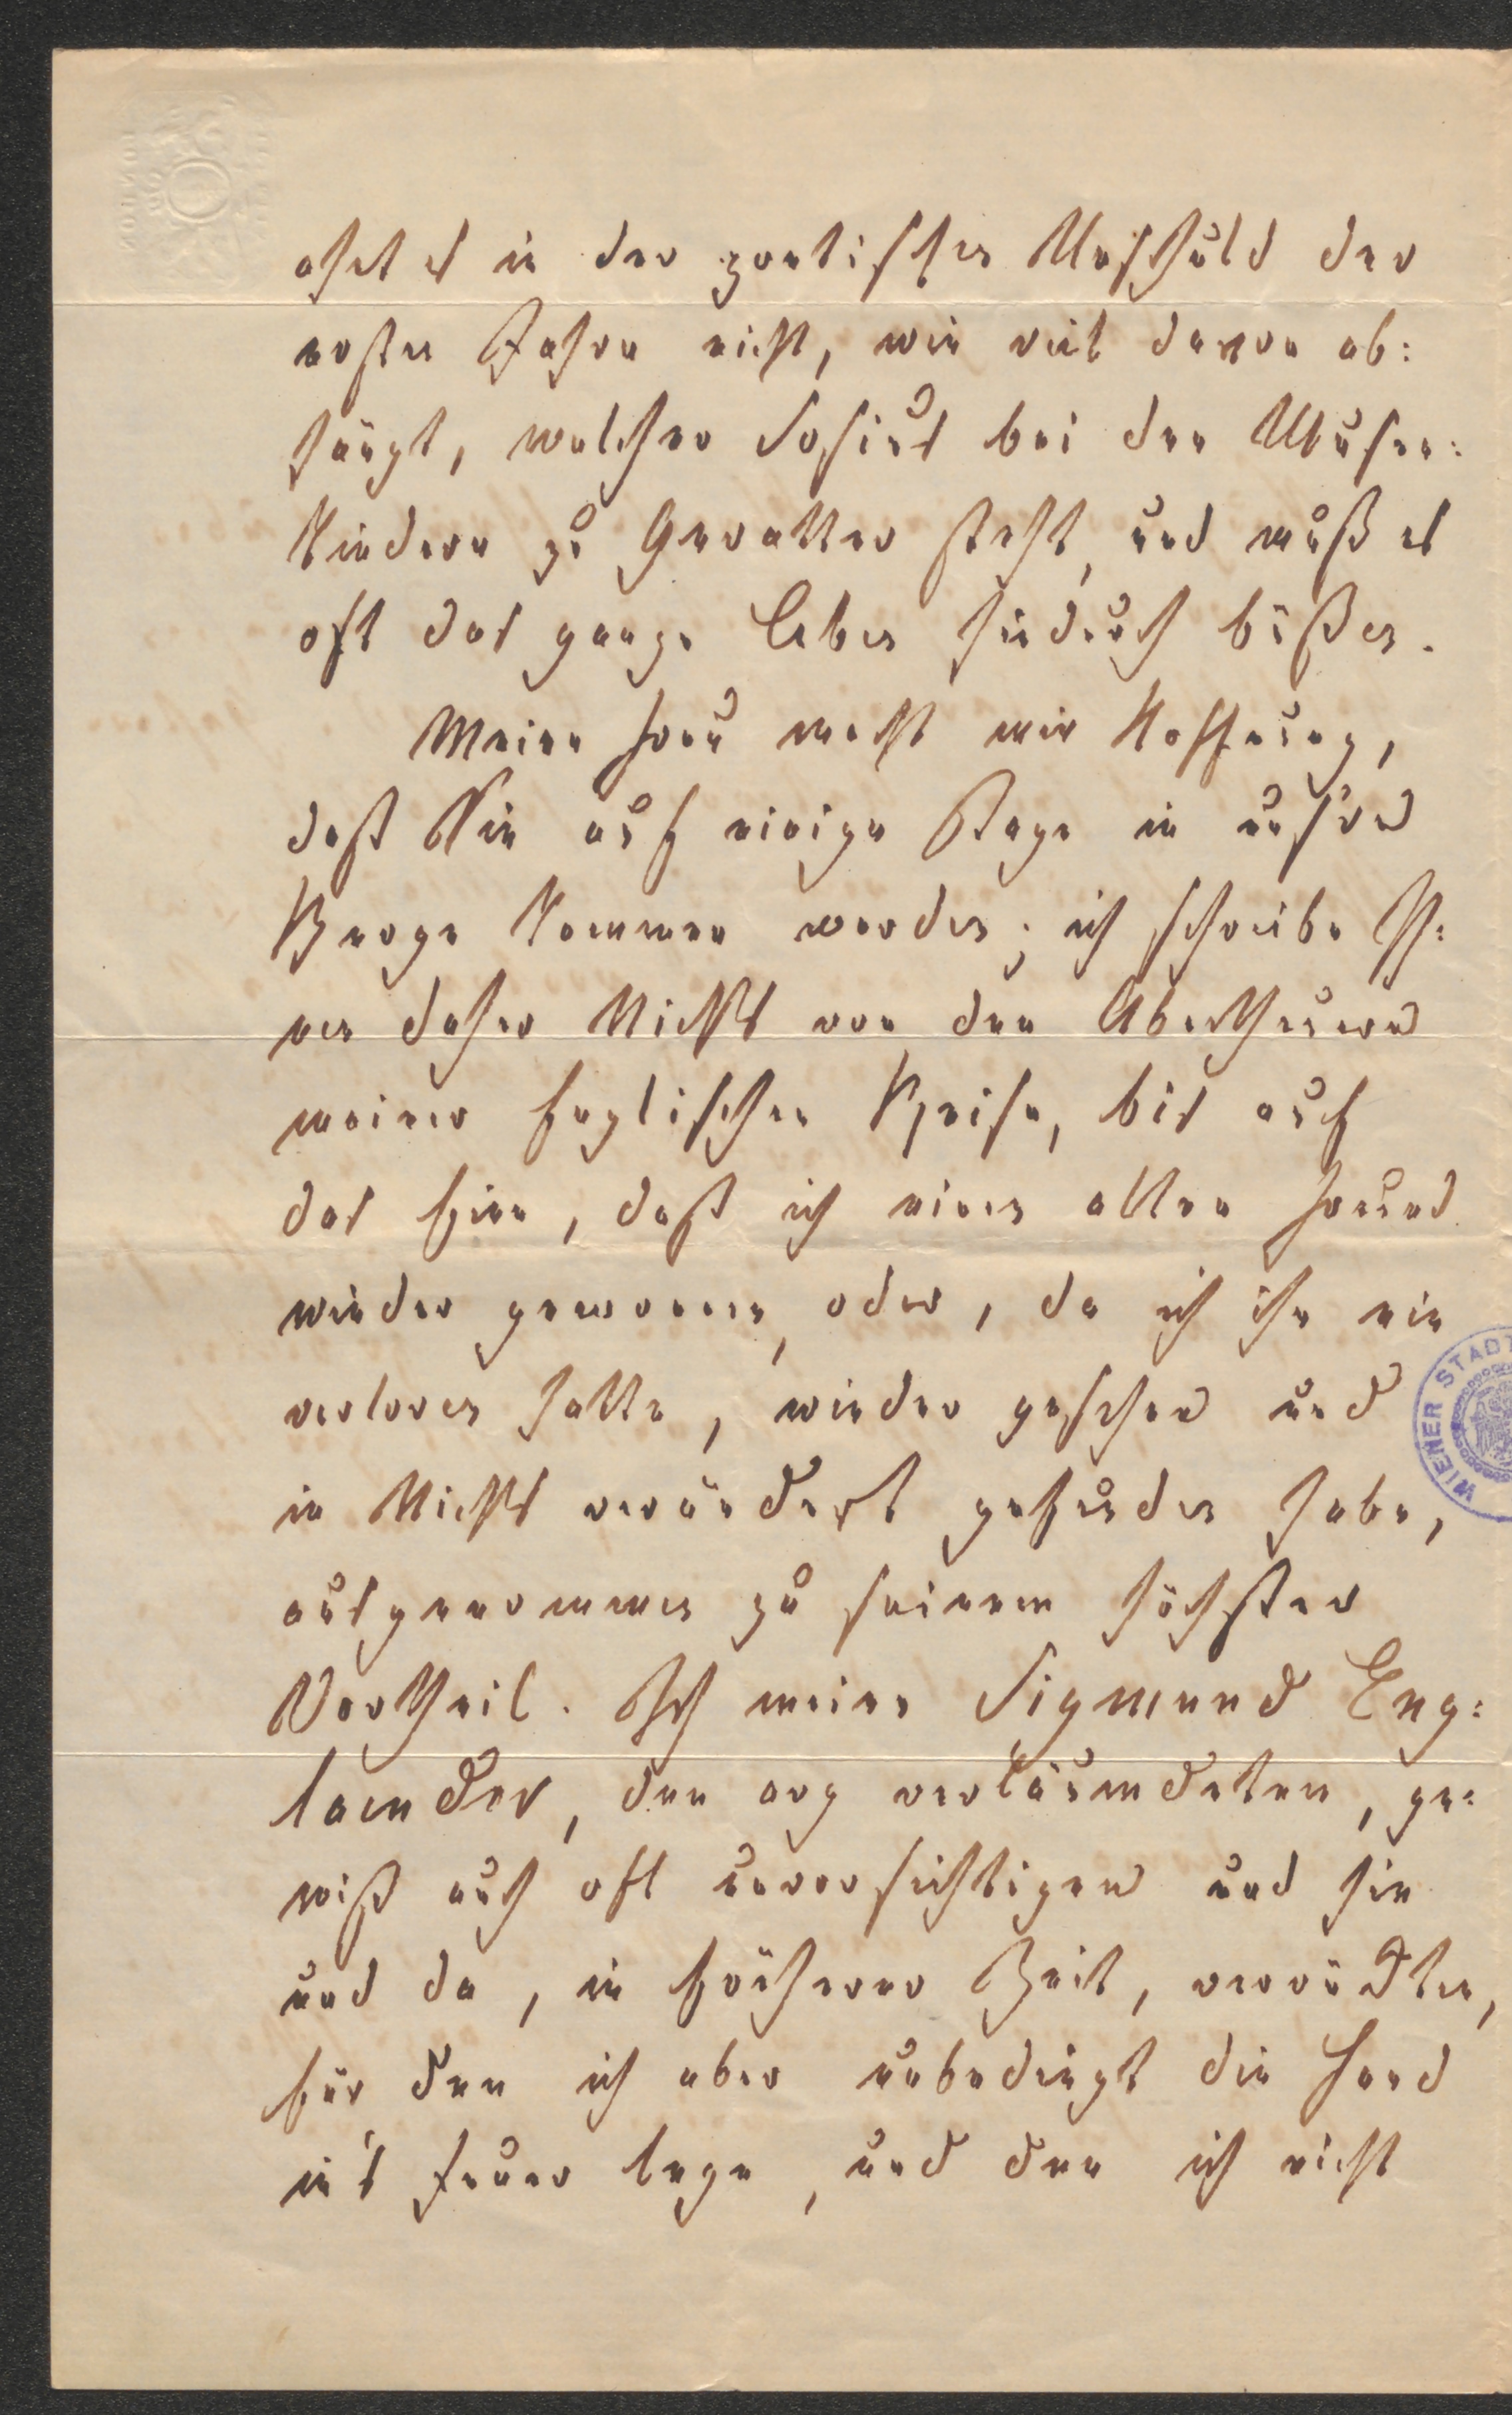 ahnt es in der poetischen Unschuld der
ersten Jahre nicht, wie viel davon ab:
hängt, welcher Sosius bei den Musen:
Kindern zu Gevatter steht, und muß es
oft das ganze Leben hindurch büßen.
Meine Frau macht mir Hoffnung,
daß Sie auf einige Tage in unsre
Berge kommen werden; ich schreibe Ih:
nen daher Nichts von den Abentheuern
meiner Englischen Reise, bis auf
das Eine, daß ich einen alten Freund
wieder gewonnen, oder, da ich ihn nie
verloren hatte, wieder gesehen und
in Nichts verändert gefunden habe,
ausgenommen zu seinem höchsten
Vortheil. Ich meine Sigmund Eng:
laender, den arg verläumdeten, ge:
wiß auch oft unvorsichtigen und hie
und da, in früherer Zeit, verrückten,
für den ich aber unbedingt die Hand
in's Feuer lege, und den ich nicht
WIENER STADT